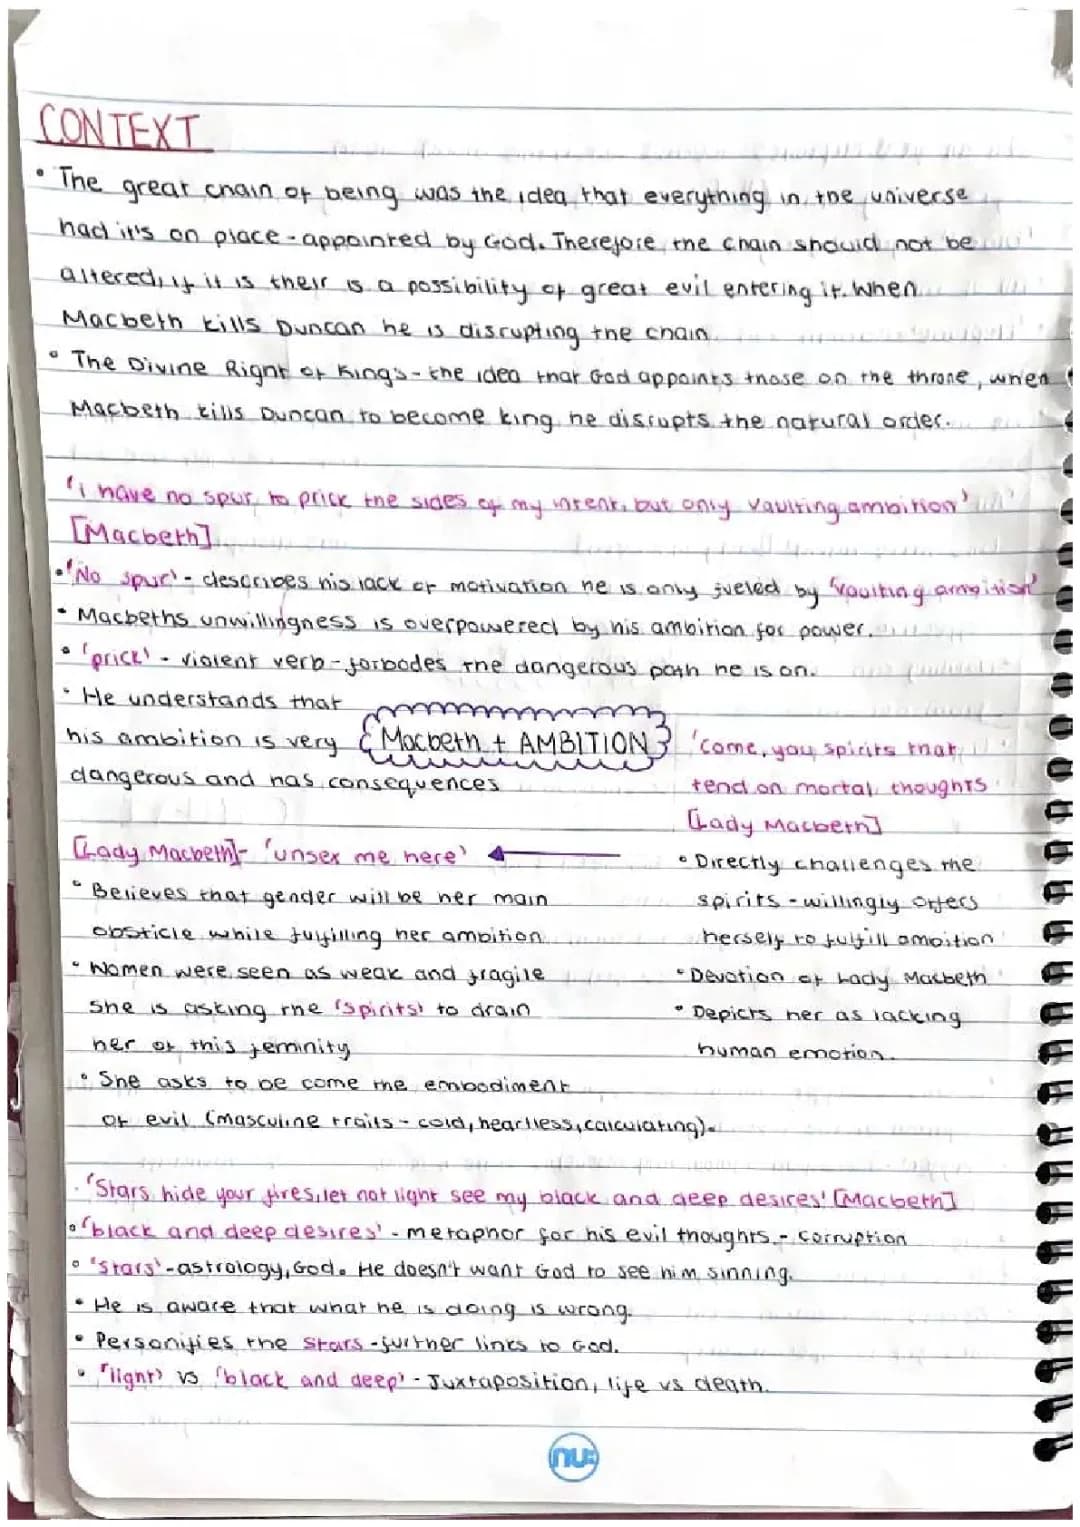 CONTEXT
• The great chain of being was the idea that everything in the universe
had it's on place - appointed by God. Therefore the chain should not be
altered, if it is their is a possibility of great evil entering it. When
Macbeth kills Duncan he is disrupting the chain.
• The Divine Right of Kings - the idea that God appoints those on the throne, when
Macbeth kills Duncan to become king he disrupts the natural order.
'i have no spur to prick the sides of my intent, but only vaulting ambition'
[Macbeth]
• 'No spur' - describes his lack of motivation he is only fueled by 'vaulting ambition'
• Macbeths unwillingness is overpowered by his ambition for power.
• 'prick' - violent verb - forbodes the dangerous path he is on.
• He understands that
his ambition is very
dangerous and has consequences
Macbeth + AMBITION
'come, you spirits that
tend on mortal thoughts
[Lady Macbeth]
• Directly challenges the
spirits - willingly offers
herself to fulfill ambition
• Devotion of Lady Macbeth
• Depicts her as lacking
human emotion.
[Lady Macbeth] - 'unsex me here'
• Believes that gender will be her main
obsticle while fulfilling her ambition
• Women were seen as weak and fragile
she is asking the 'spirits' to drain
her of this feminity
• She asks to be come the embodiment
of evil (masculine traits - cold, heartless, calculating).
'Stars hide your fires, let not light see my black and deep desires' [Macbeth]
• 'black and deep desires' - metaphor for his evil thoughts - corruption
• 'Stars' - astrology, God. He doesn't want God to see him sinning.
• He is aware that what he is doing is wrong.
• Personifies the stars - further links to God.
• 'light' vs 'black and deep' - Juxtaposition, life vs death.
nu: